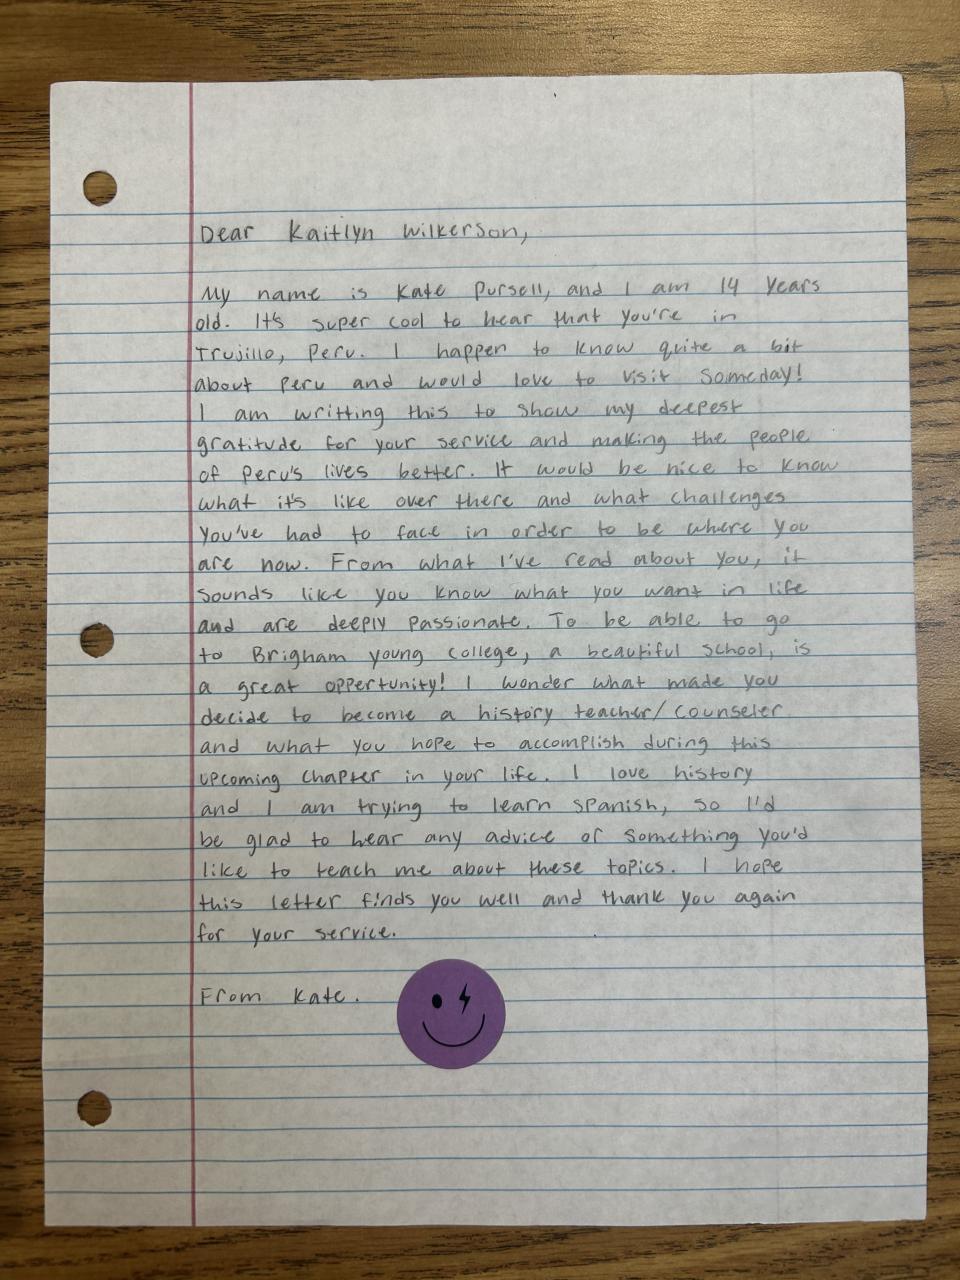 Dear Kaitlyn Wilkerson,
My name is Kate Pursell, and I am 14 years
old. It's super cool to hear that you're in
Trujillo, Peru. I happen to know quite a bit
about Peru and would love to visit someday!
I am writting this to show my deepest
gratitude for your service and making the people
of Peru's lives better. It would be nice to know
what it's like over there and what challenges
you've had to face in order to be where you
are now. From what I've read about you, it
sounds like you know what you want in life
and are deeply passionate. To be able to go
to Brigham young college, a beautiful school, is
a great oppertunity! I wonder what made you
decide to become a history teacher/counseler
and what you hope to accomplish during this
upcoming chapter in your life. I love history
and I am trying to learn spanish, so I'd
be glad to hear any advice or something you'd
like to teach me about these topics. I hope
this letter finds you well and thank you again
for your service.
From Kate.